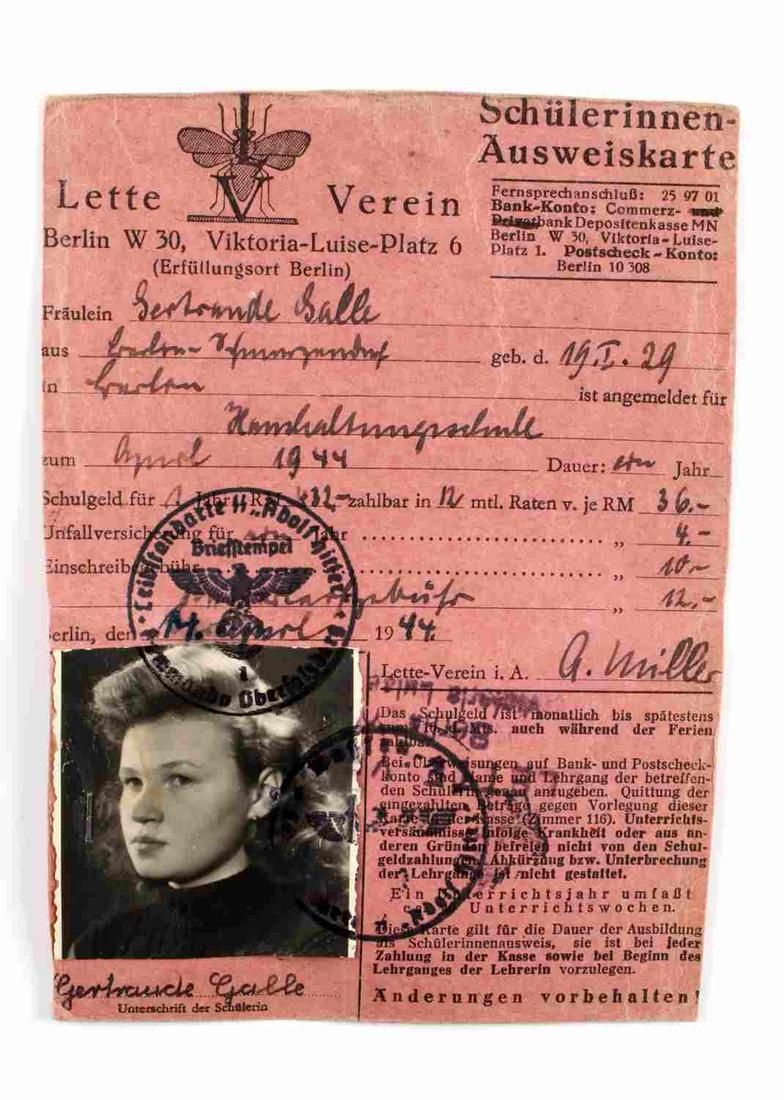 Schülerinnen-
Ausweiskarte
Lette V Verein
Berlin W 30, Viktoria-Luise-Platz 6
(Erfüllungsort Berlin)
Fernsprechanschluß: 25 97 01
Bank-Konto: Commerz- und
Privatbank Depositenkasse MN
Berlin W 30, Viktoria-Luise-
Platz 1. Postscheck-Konto:
Berlin 10 308
Fräulein Gertraude Galle
aus Berlin-Schmargendorf geb. d. 19.I.29
in Berlin ist angemeldet für
Haushaltungsschule
zum April 1944 Dauer: ein Jahr
Schulgeld für 1 Jahr RM 432,- zahlbar in 12 mtl. Raten v. je RM 36.-
Unfallversicherung für ein Jahr „ 4.-
Einschreibegebühr „ 10.-
„ 12.-
Berlin, den 14. April 1944.
Leibstandarte SS „Adolf Hitler"
Briefstempel
1
Lette-Verein i. A. A. Müller
Das Schulgeld ist monatlich bis spätestens
zum 10. jd. Mts. auch während der Ferien
zahlbar.
Bei Überweisungen auf Bank- und Postscheck-
konto sind Name und Lehrgang der betreffen-
den Schülerin genau anzugeben. Quittung der
eingezahlten Beträge gegen Vorlegung dieser
Karte in der Kasse (Zimmer 116). Unterrichts-
versäumnisse infolge Krankheit oder aus an-
deren Gründen befreien nicht von den Schul-
geldzahlungen. Abkürzung bzw. Unterbrechung
der Lehrgänge ist nicht gestattet.
Ein Unterrichtsjahr umfaßt
Unterrichtswochen.
Diese Karte gilt für die Dauer der Ausbildung
als Schülerinnenausweis, sie ist bei jeder
Zahlung in der Kasse sowie bei Beginn des
Lehrganges der Lehrerin vorzulegen.
Änderungen vorbehalten!
Gertraude Galle
Unterschrift der Schülerin